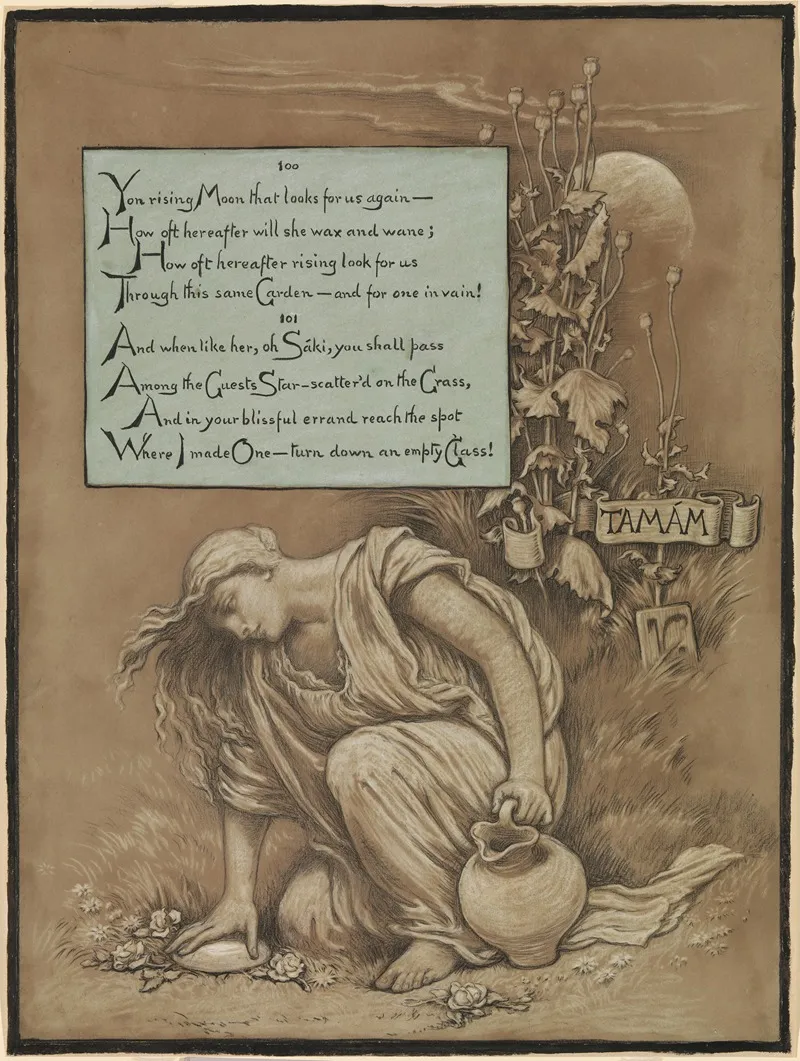 100
Yon rising Moon that looks for us again—
How oft hereafter will she wax and wane;
How oft hereafter rising look for us
Through this same Garden—and for one in vain!
101
And when like her, oh Sáki, you shall pass
Among the Guests Star-scatter'd on the Grass,
And in your blissful errand reach the spot
Where I made One—turn down an empty Glass!
TAMÁM